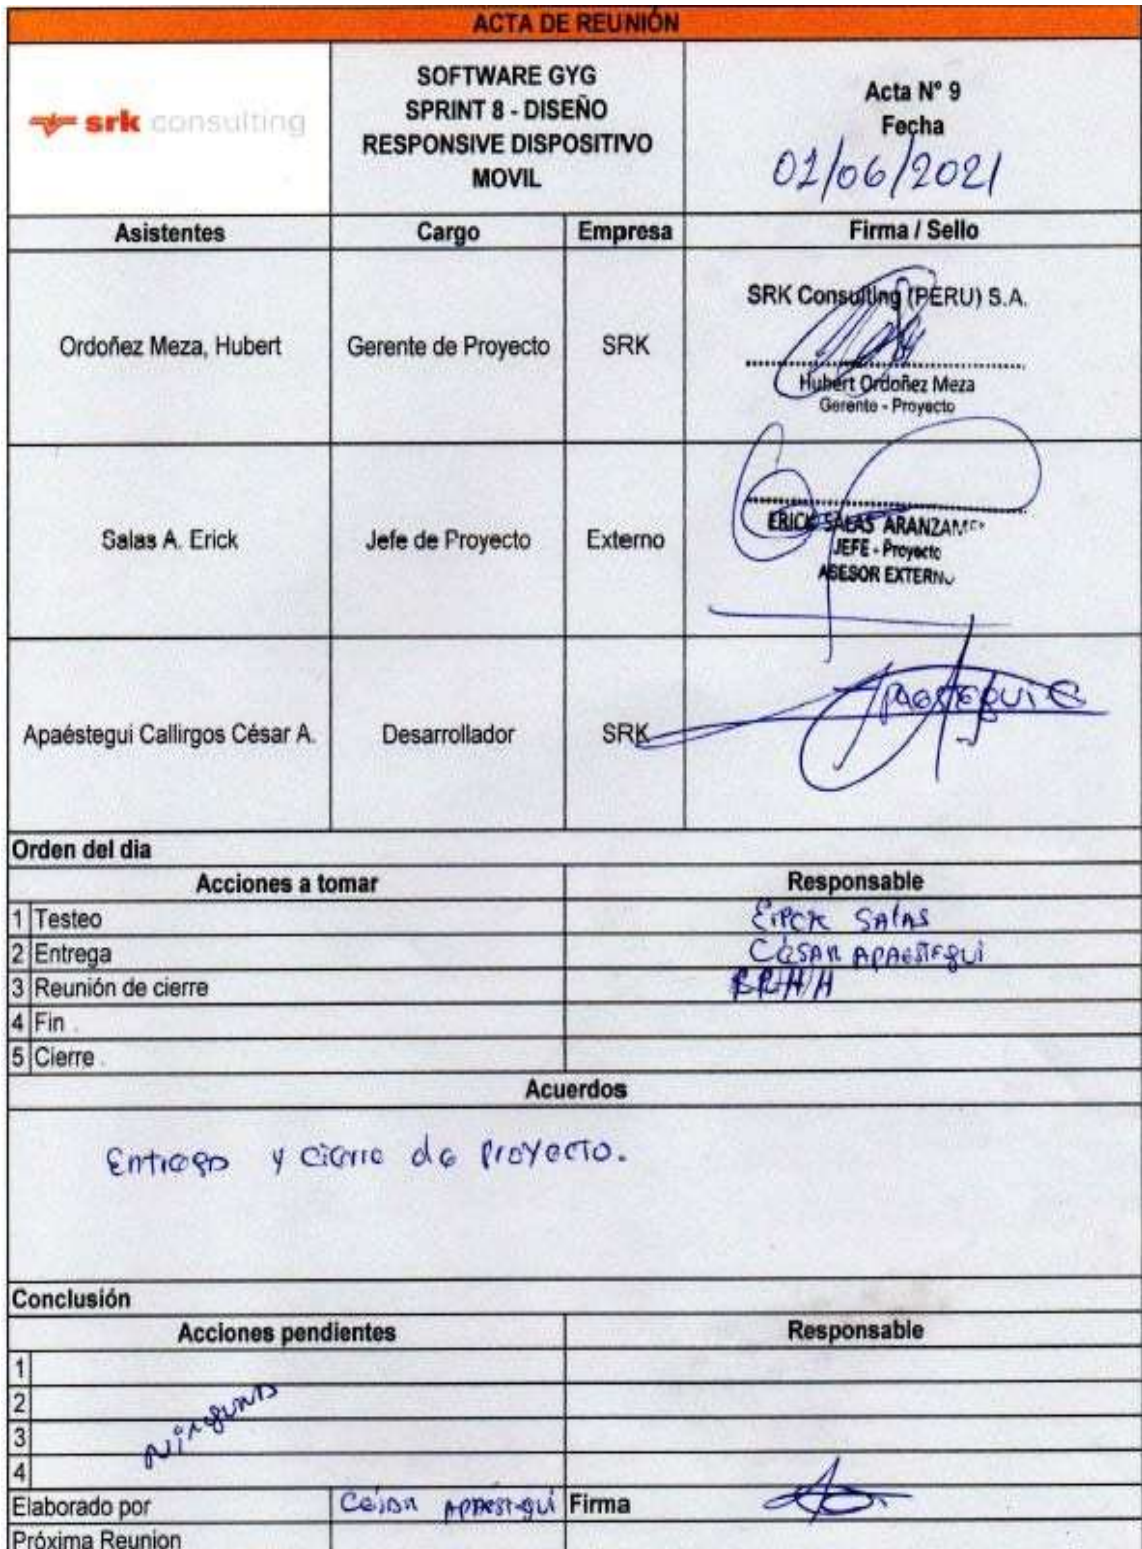 ACTA DE REUNIÓN
srk consulting
SOFTWARE GYG
SPRINT 8 - DISEÑO
RESPONSIVE DISPOSITIVO
MOVIL
Acta N° 9
Fecha
01/06/2021
Asistentes Cargo Empresa Firma / Sello
Ordoñez Meza, Hubert Gerente de Proyecto SRK
SRK Consulting (PERU) S.A.
Hubert Ordoñez Meza
Gerente - Proyecto
Salas A. Erick Jefe de Proyecto Externo
ERICK SALAS
JEFE - Proyecto
ASESOR EXTERNO
Apaéstegui Callirgos César A. Desarrollador SRK
Apaestegui C
Orden del dia
Acciones a tomar Responsable
1 Testeo Erick Salas
2 Entrega César Apaéstegui
3 Reunión de cierre
4 Fin
5 Cierre
Acuerdos
Entrega y cierre de proyecto.
Conclusión
Acciones pendientes Responsable
1
2
3
4
Ninguna
Elaborado por César Apaestegui Firma
Próxima Reunion